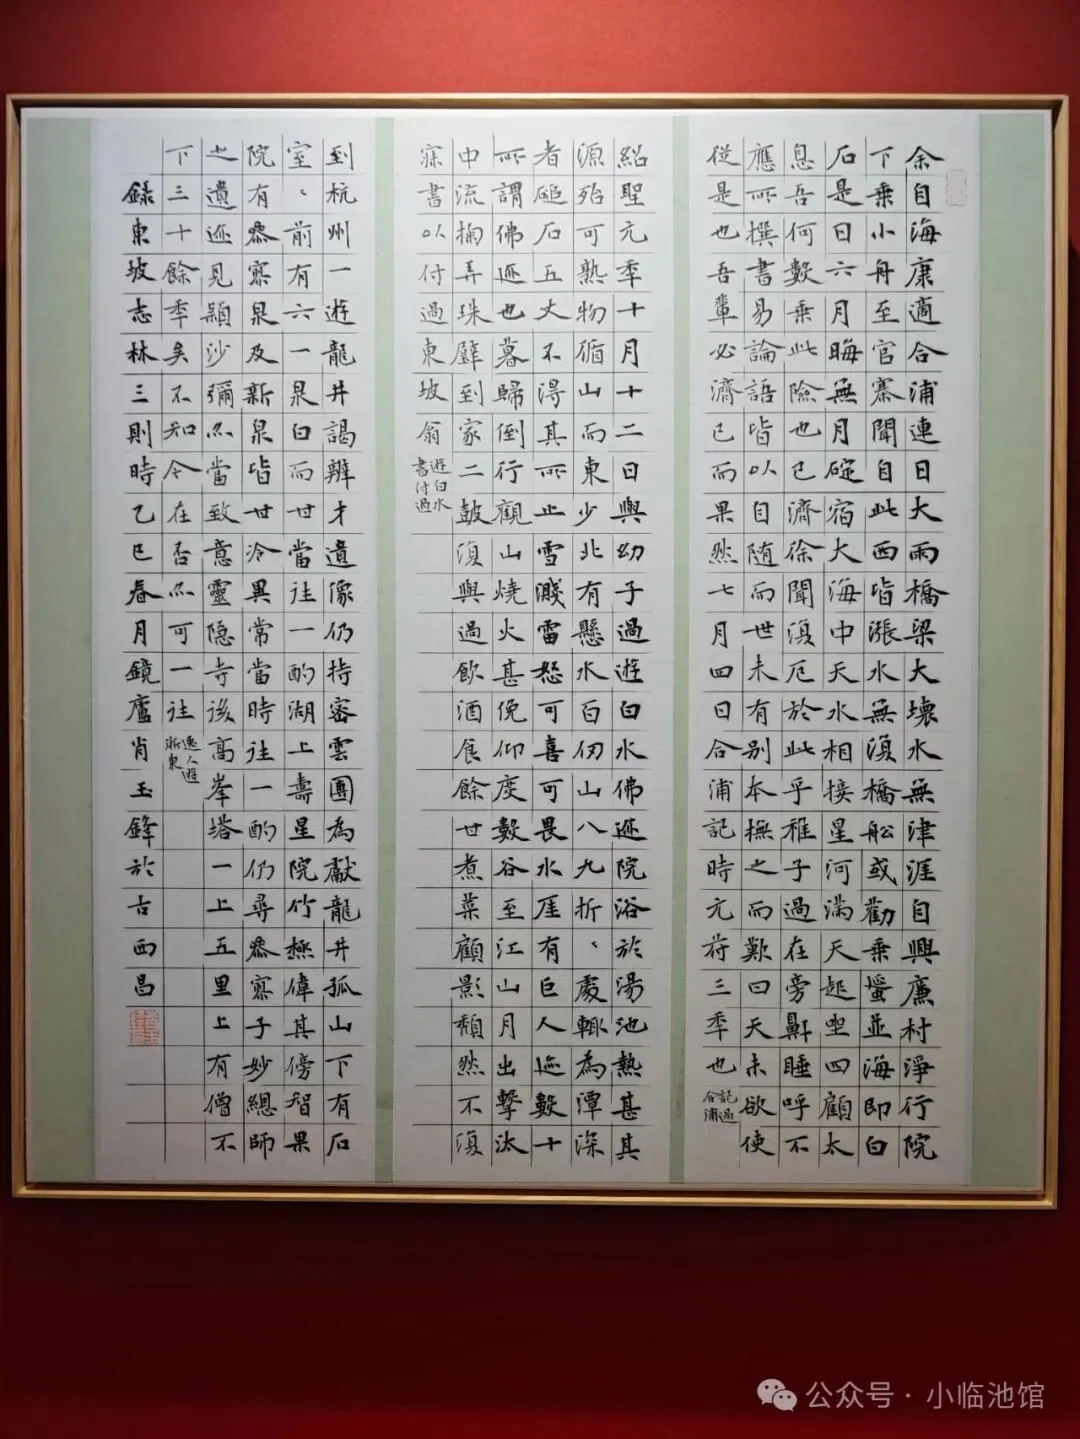 余自海康適合浦連日大雨橋梁大壞水無津涯自興廉村淨行院
下乗小舟至官寨聞自此西皆漲水無復橋船或勸乗蜑並海即白
石是日六月晦無月碇宿大海中天水相接星河滿天起坐四顧太
息吾何數乗此險也已濟徐聞復厄於此乎稚子過在旁鼾睡呼不
應所撰書易論語皆以自随而世未有别本撫之而歎曰天未欲使
從是也吾輩必濟已而果然七月四日合浦記時元符三年也
記過
合浦
紹聖元年十月十二日與幼子過遊白水佛迹院浴於湯池熱甚其
源殆可熟物循山而東少北有懸水百仞山八九折、處輒為潭深
者磓石五丈不得其所止雪濺雷怒可喜可畏水厓有巨人迹數十
所謂佛迹也暮歸倒行觀山燒火甚俛仰度數谷至江山月出擊汰
中流掬弄珠璧到家二鼓復與過飲酒食餘甘煮菜顧影頹然不復
寐書以付過東坡翁
遊白水
書付過
到杭州一遊龍井謁辨才遺像仍持密雲團為獻龍井孤山下有石
室、前有六一泉白而甘當往一酌湖上壽星院竹極偉其傍智果
院有參寥泉及新泉皆甘冷異常當時往一酌仍尋參寥子妙總師
之遺迹見穎沙彌亦當致意靈隐寺後高峯塔一上五里上有僧不
下三十餘年矣不知今在否亦可一往
逸人遊
浙東
錄東坡志林三則時乙巳春月鏡廬肖玉鋒於古西昌
公众号·小临池馆